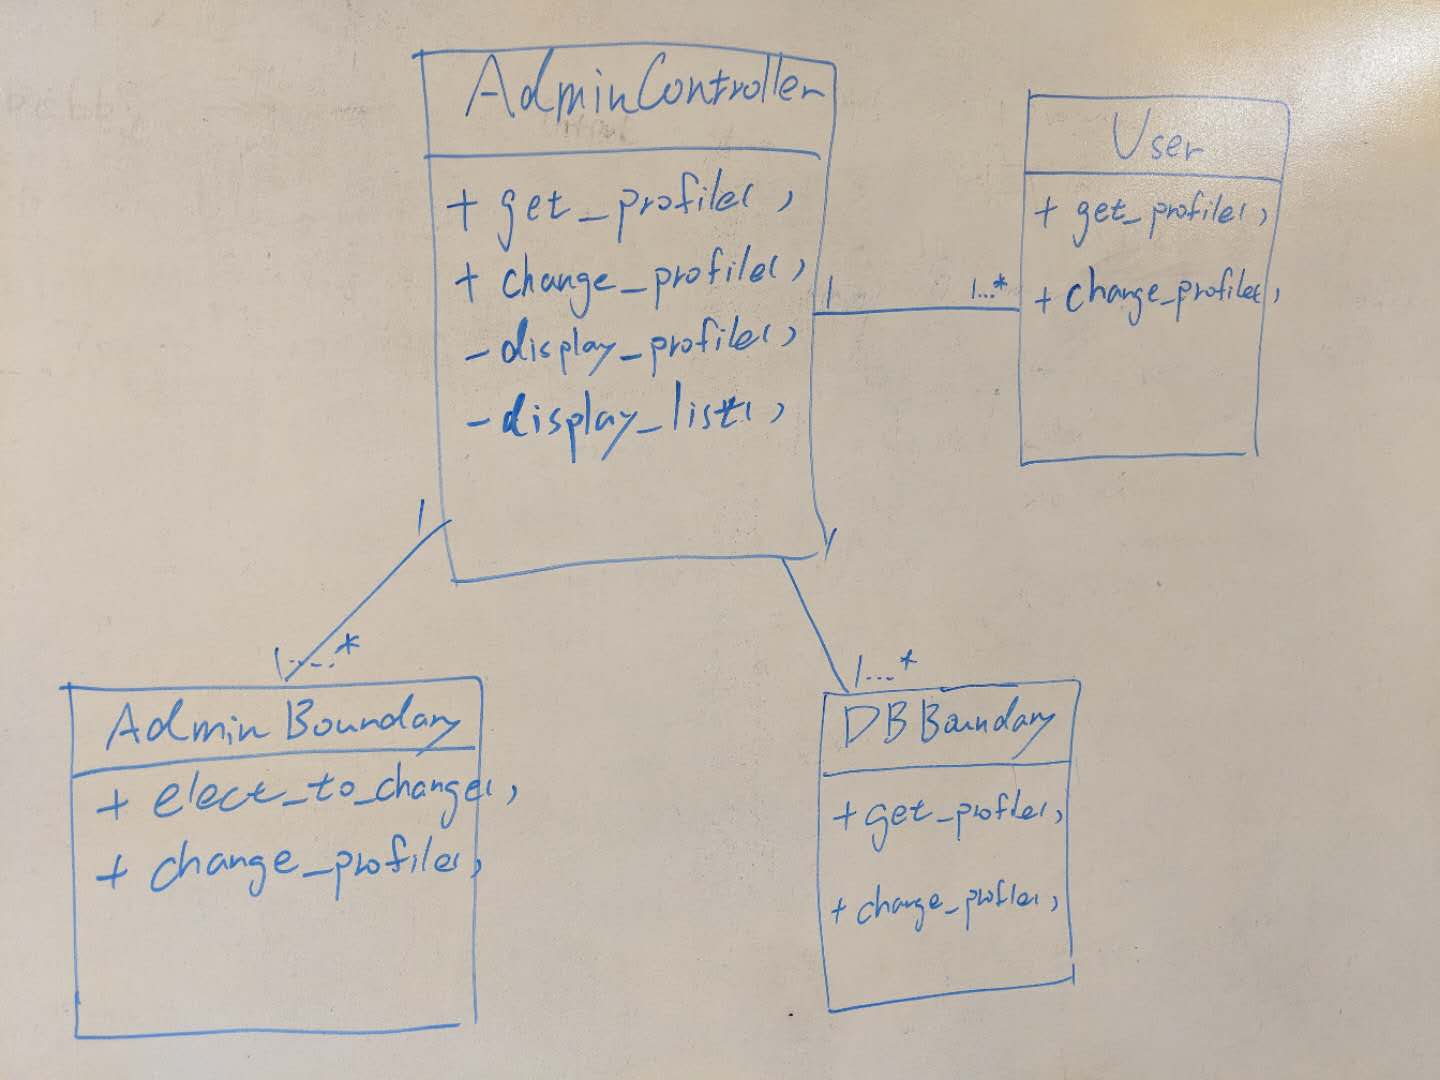 AdminController
+ get_profile()
+ change_profile()
- display_profile()
- display_list()
User
+ get_profile()
+ change_profile()
1
1...*
1
1.....*
1
1...*
Admin Boundary
+ elect_to_change()
+ change_profile()
DB Boundary
+ get_profile()
+ change_profile()